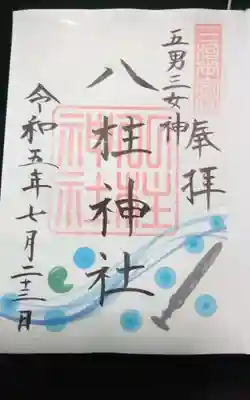 五男三女神
奉拝
八柱神社
令和五年七月二十三日